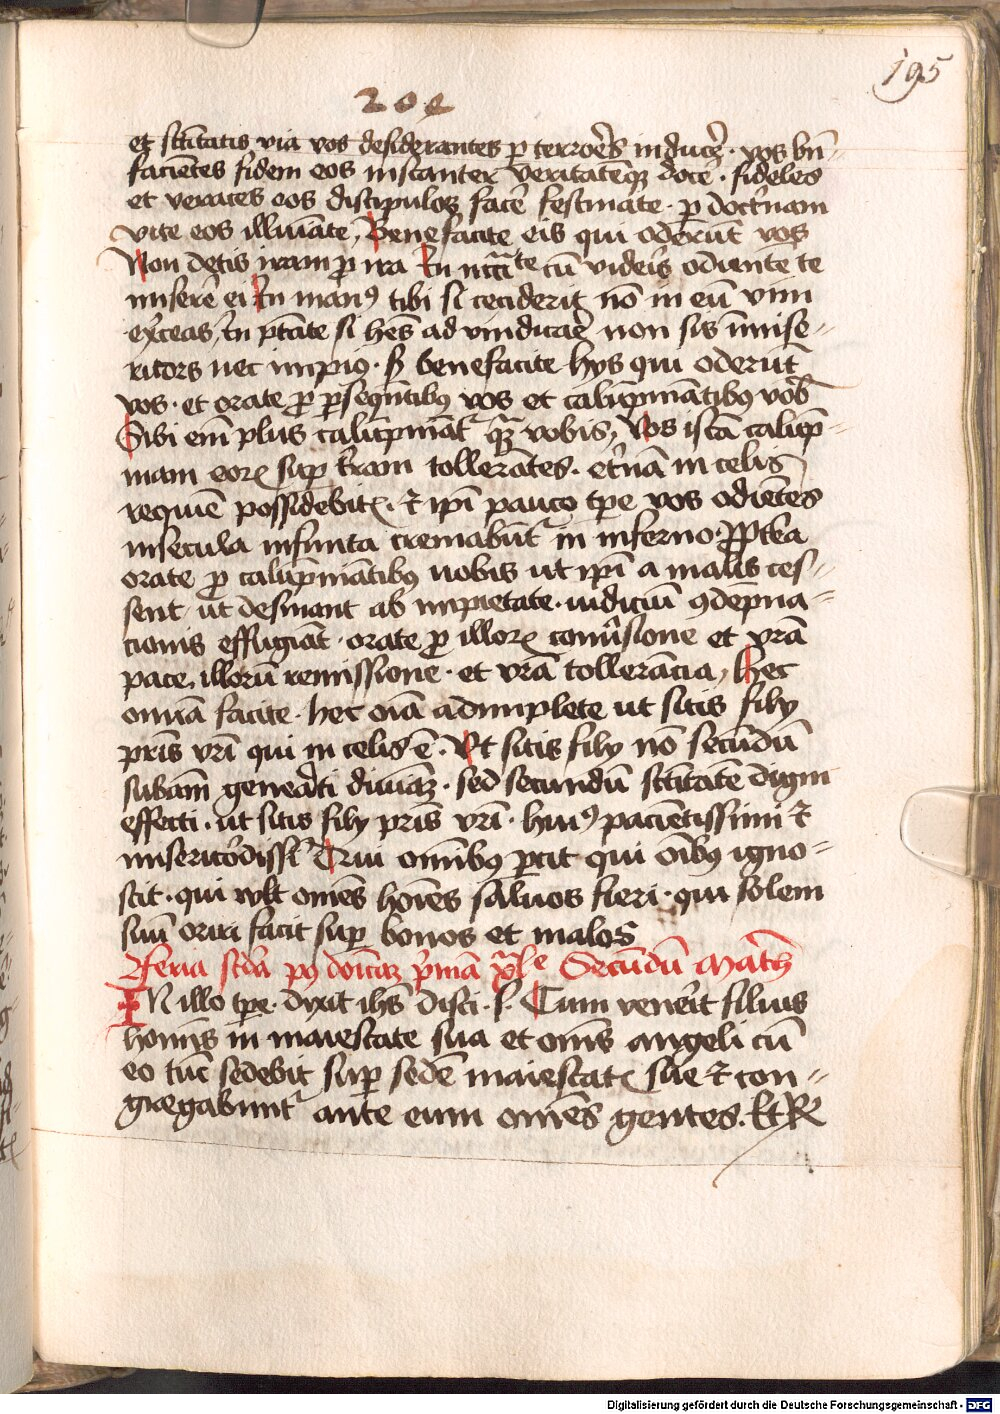 195
204
et sc̄titatis via vos desiderantes ꝑ terrorē inducer̄ · vos bn̄=
facientes fidem eos instanter veritatēqꝫ docer̄ · fideles
et veraces eos discipulos facer̄ festinate · ꝑ doctͥnam
vite eos illuīate, Benefacite eis qui oderūt vos
Non detis iram ꝓ ira En cū videris odientē te
miserē ei En manꝰ tibi si ceciderit nō in eū vim
exͤceas, En ptāte si hēs ad vindicaͤ non sis īmise=
ricors nec impiꝰ · sꝫ benefacite hys qui oderūt
vos · et orate ꝓ ꝑsequētibꝰ vos et calūpniātibꝰ vob̄
Sibi em̄ plus calūpniāt᷑ qͣꝫ vobis, Vos istā calūp=
niam eorꝝ suꝑ tr̄ram tollerātes · et̄nā in celis
requiē possidebitꝭ · ⁊ ip̄i pauco tꝑe vos odiētes
in secula infinita cremabūt᷑ in inferno · ꝓptea
orate ꝓ calūpniātibꝰ uobis ut ip̄i a malis ces=
sent ut desinant ab impietate · iudiciū ꝯdēpna=
cionis effugiāt · orate ꝓ illorꝝ conūsione et vrā
pace, illorū remissione · et vrā tollerācia, Hec
omīa facite · hec oīa adimplete ut sitis filÿ
pr̄is vrī qui in celis ē · Ut sitis filÿ nō secūdū
subām geneͣti diuīāꝫ · sed secundū sc̄titatē digni
effecti · ut sitis filÿ pr̄is vrī · huiꝰ pacientissimi ⁊
misericͦdissi᷑ Qui omībꝰ ꝑcit qui oībꝰ igno=
scit · qui wlt omēs hoīes saluos fieri · qui solem
suū oriri facit suꝑ bonos et malos
Feria scd̄a pꝰ domīcaꝫ pͥmā xlͤ Secūdū Math̄
IN illo tꝑe · dixit ihs̄ disci · s · Cum venerͥt filius
homīs in maiestate sua et omīs angeli cū
eo tūc sedebit suꝑ sedē maiestatꝭ sue ⁊ con=
gregabunt᷑ ante eum omēs gentes. Et R̄
Digitalisierung gefördert durch die Deutsche Forschungsgemeinschaft - DFG